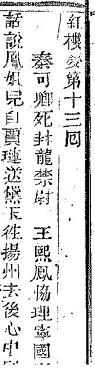 紅樓夢第十三囘
秦可卿死封龍禁尉　王熙鳳協理寧國
話說鳳姐兒自賈璉送黛玉徃揚州去後心中